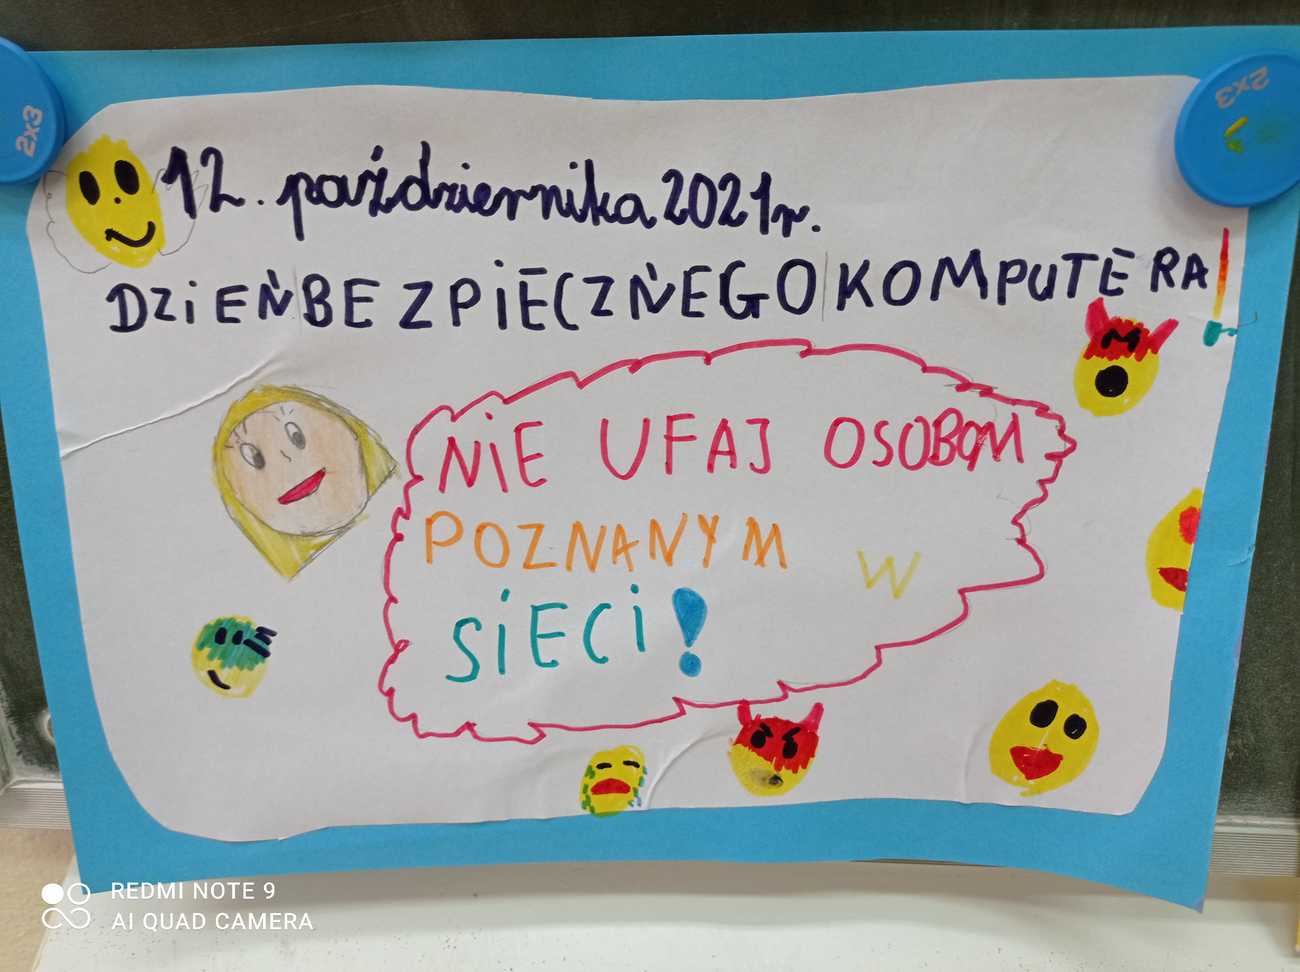 12. października 2021r.
DZIEŃ BEZPIECZŃEGO KOMPUTERA!
NIE UFAJ OSOBOM
POZNANYM W
SIECI!
2x3
2x3
REDMI NOTE 9
AI QUAD CAMERA